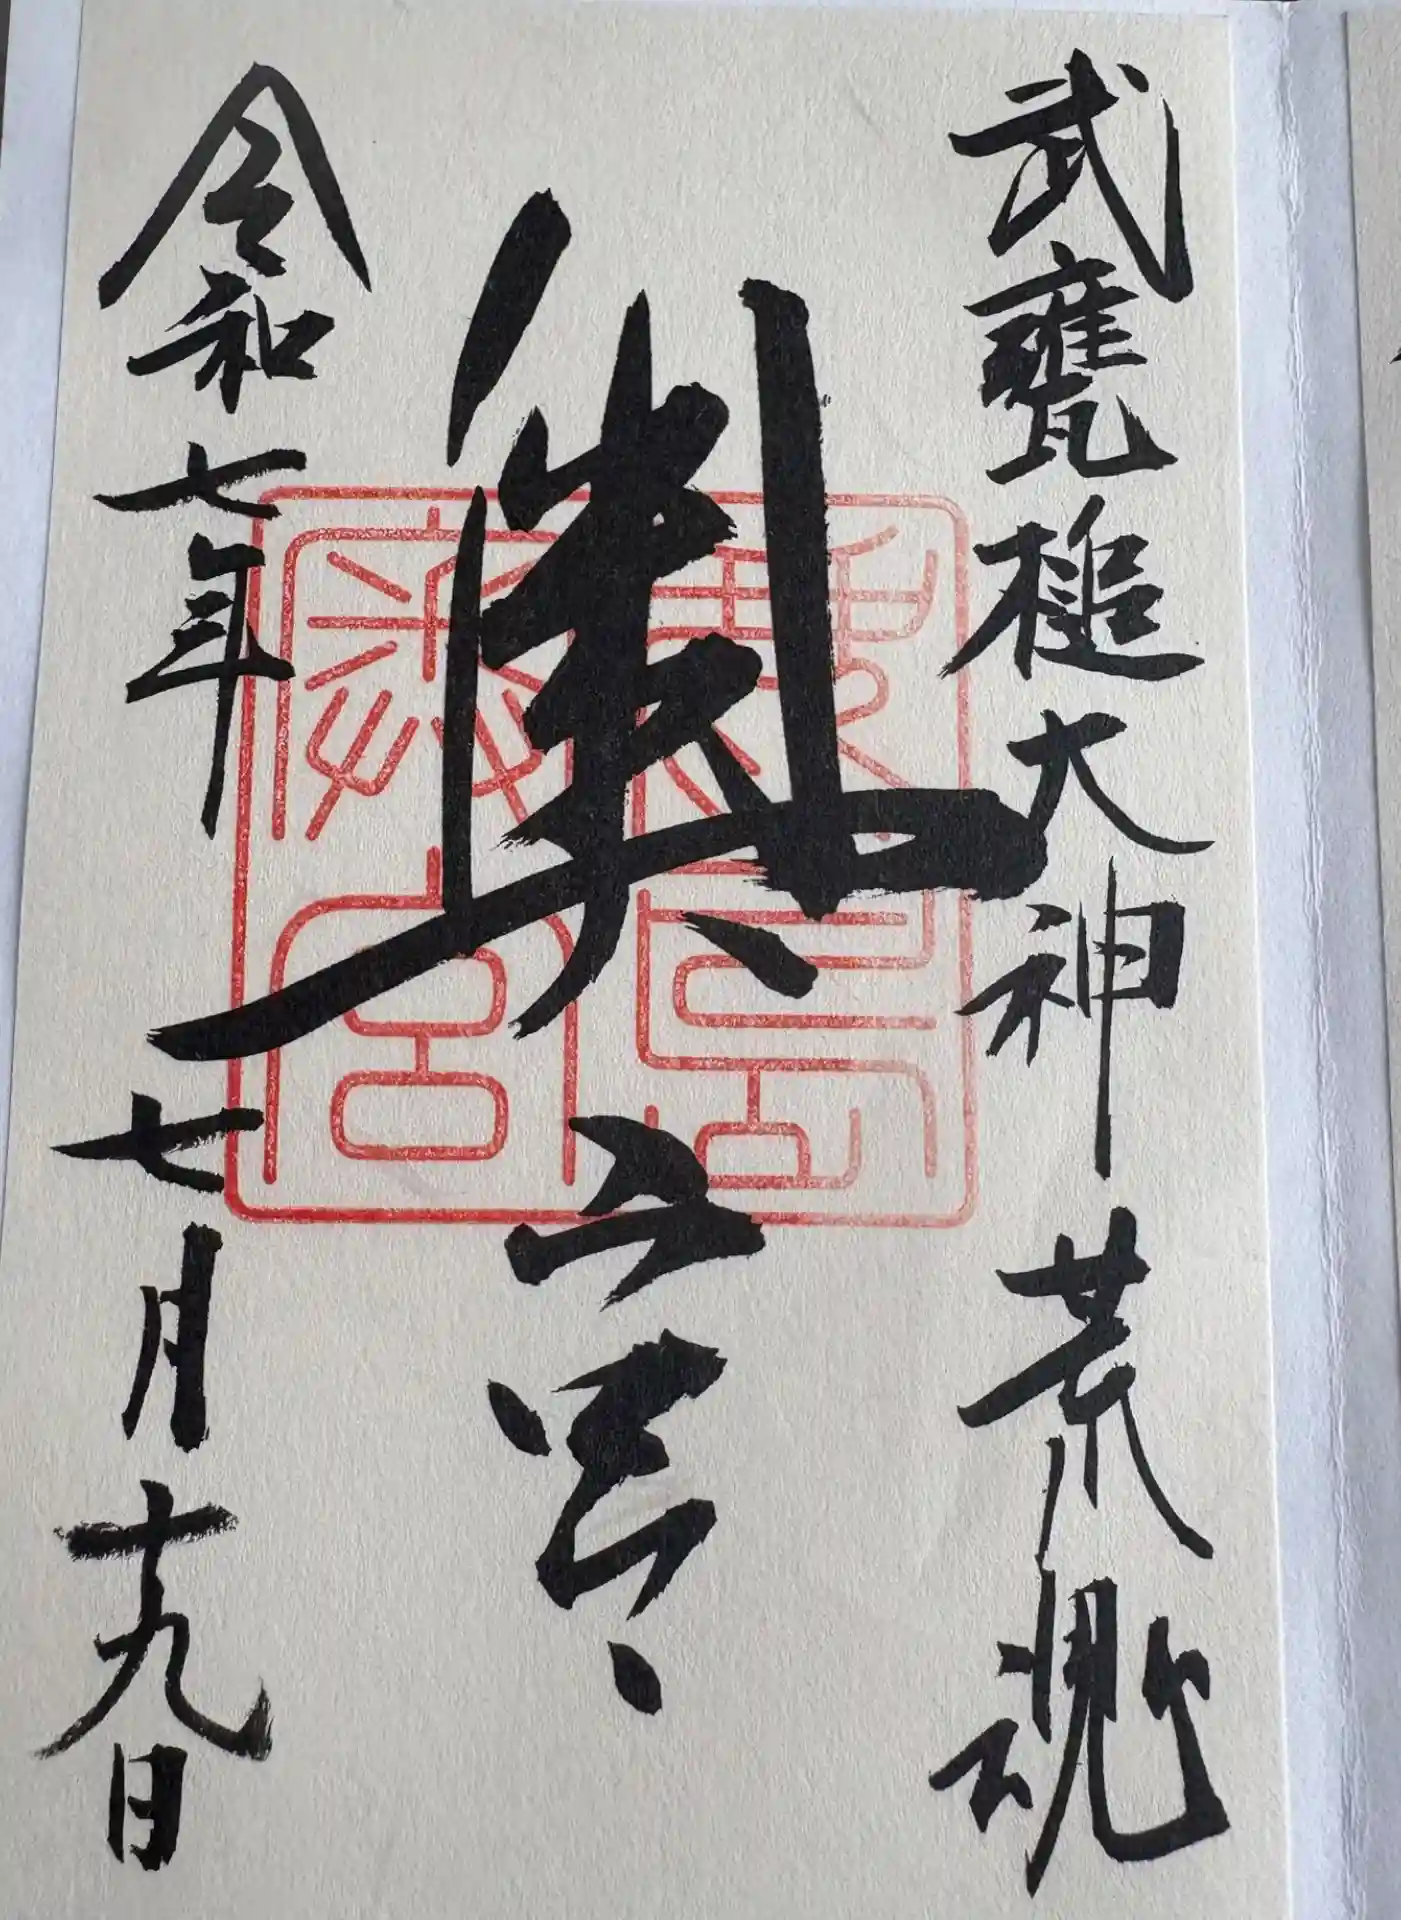 武甕槌大神 荒魂
奥宮
鹿島
奥宮
令和七年 七月十九日